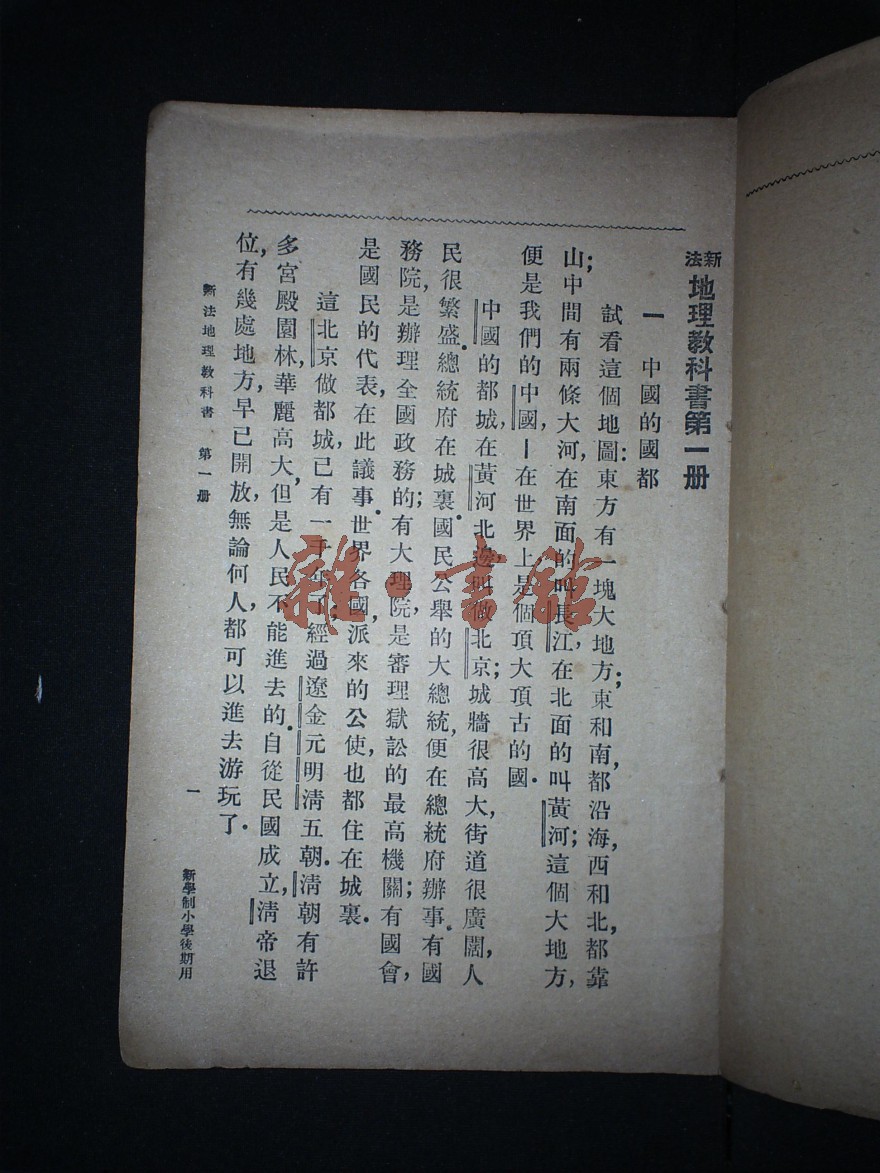 新法地理教科書第一册
一 中國的國都
試看這個地圖：東方有一塊大地方；東和南，都沿海，西和北，都靠
山；中間有兩條大河，在南面的叫長江，在北面的叫黃河；這個大地方，
便是我們的中國，—在世界上是個頂大頂古的國．
中國的都城，在黃河北邊，叫做北京；城牆很高大，街道很廣闊，人
民很繁盛．總統府在城裏．國民公舉的大總統，便在總統府辦事．有國
務院，是辦理全國政務的；有大理院，是審理獄訟的最高機關；有國會，
是國民的代表，在此議事．世界各國，派來的公使，也都住在城裏．
這北京做都城，已有一千年了；經過遼金元明清五朝．清朝有許
多宮殿園林，華麗高大，但是人民不能進去的．自從民國成立，清帝退
位，有幾處地方，早已開放，無論何人，都可以進去游玩了．
新法地理教科書 第一册 一 新學制小學後期用
雜·書館